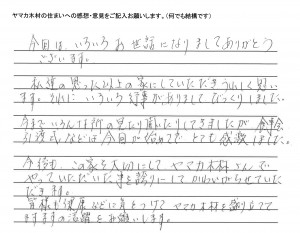 ヤマカ木材の住まいへの感想・意見をご記入お願いします。(何でも結構です)
今回は、いろいろお世話になりましてありがとう
ございます。
私達の思った以上の家にしていただきうれしく思い
ます。いろいろ行事がありましてびっくりしました。
今までいろんな所の見たり聞いたりしてきましたが
引渡式などは今回が始めてでとても感激しました。
今後も、この家を大切にしてヤマカ木材さんで
やっていただいた事を誇りにして
だきます。
皆様も健康などに気をつけてヤマカ木材を盛り立てて
ますますの活躍をお願いします。